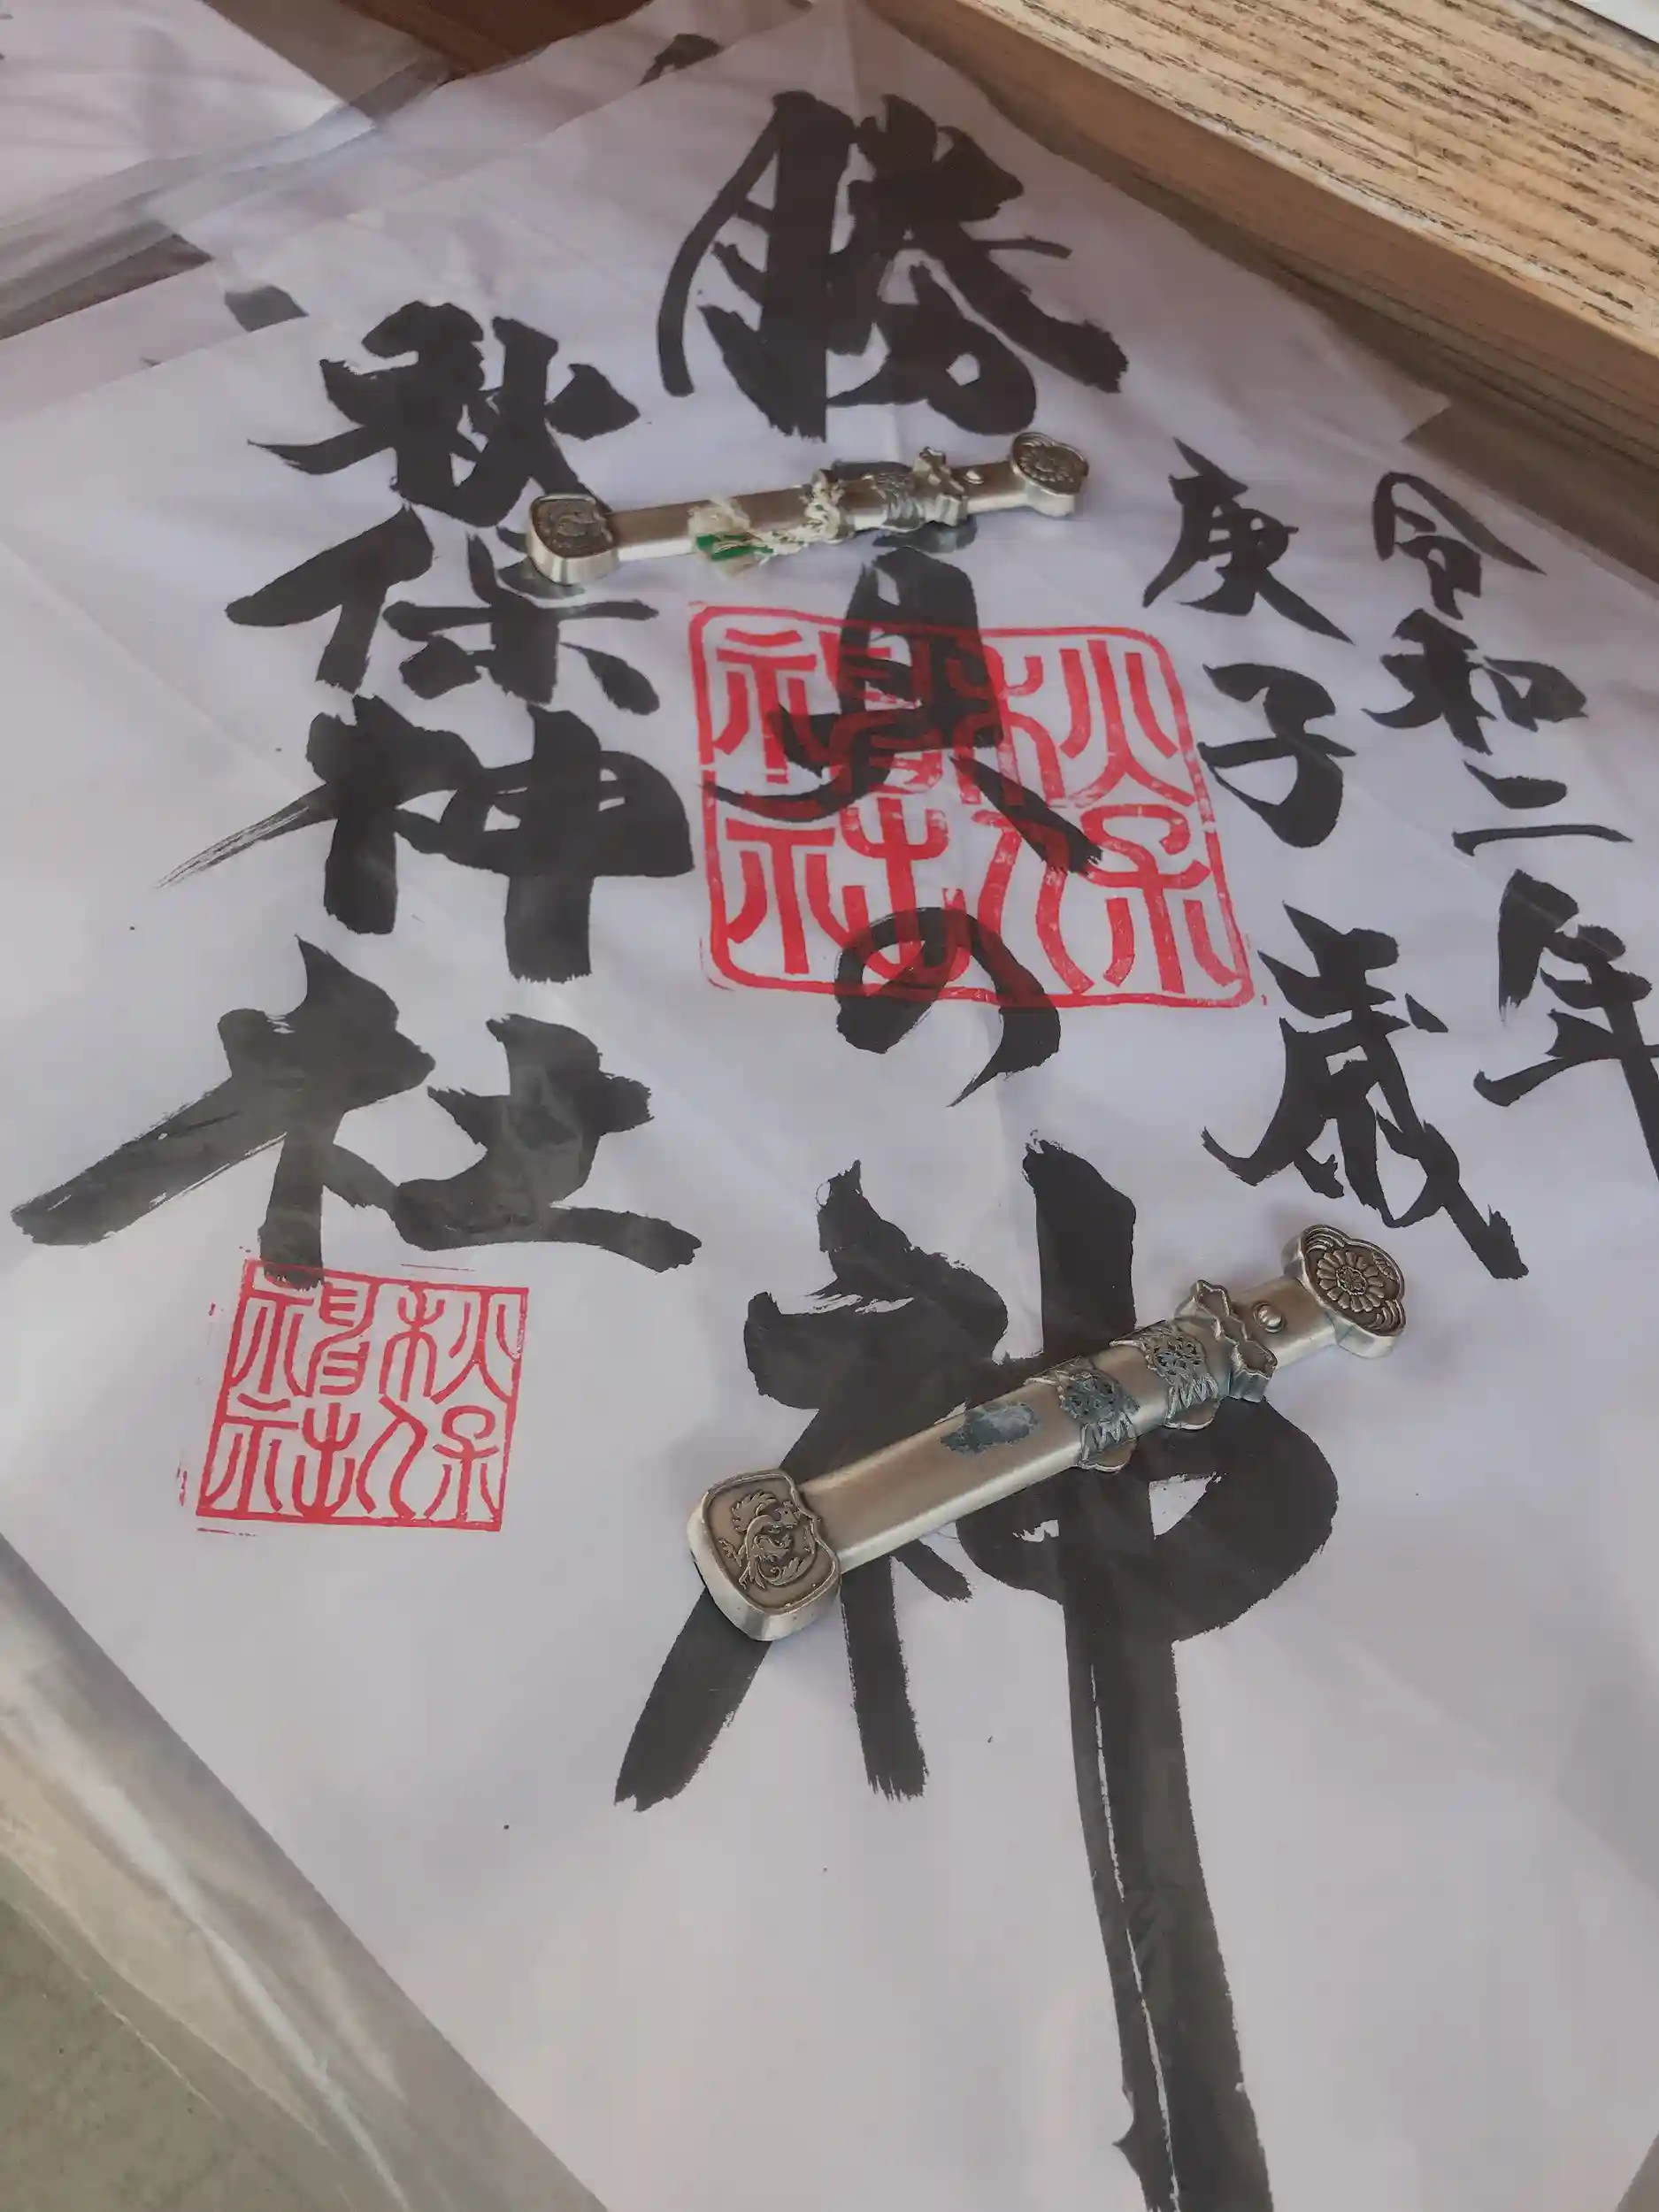 令和二年
庚子歳
勝負の神
秋保神社
秋保神社
秋保神社